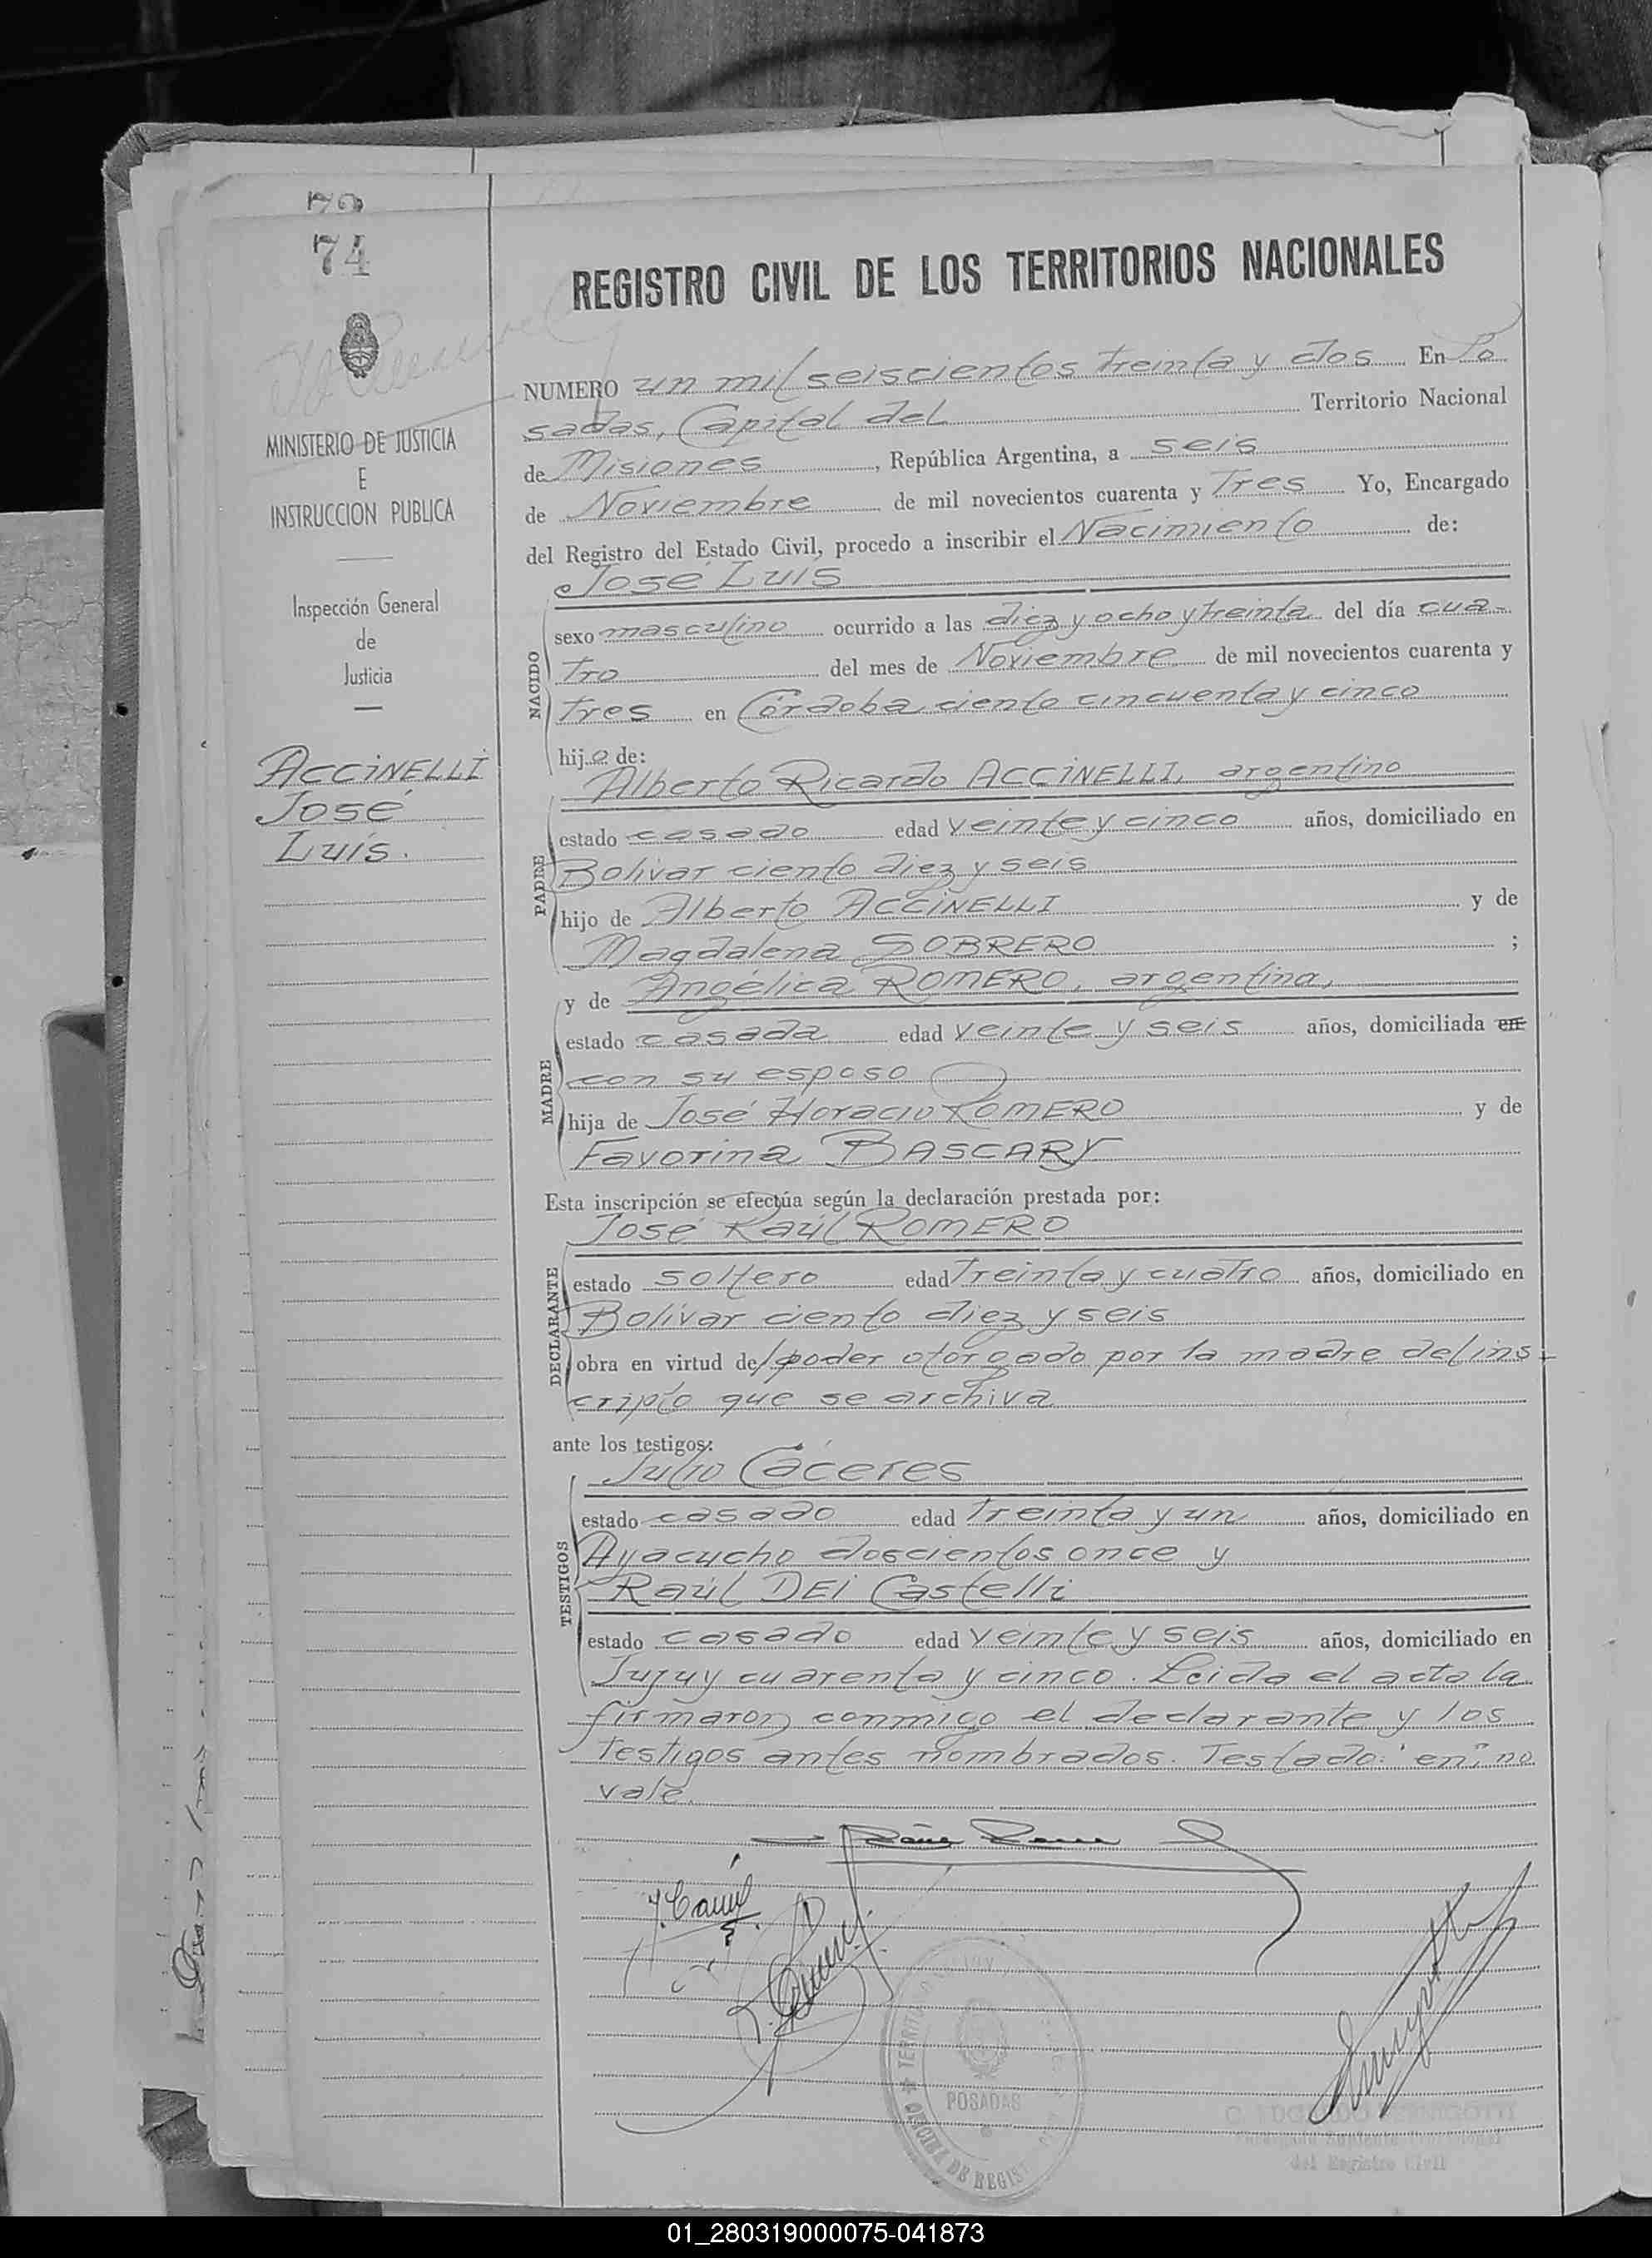 74
MINISTERIO DE JUSTICIA
E
INSTRUCCION PUBLICA
Inspección General
de
Justicia
ACCINELLI
José
Luis.
REGISTRO CIVIL DE LOS TERRITORIOS NACIONALES
NUMERO un mil seiscientos treinta y dos En Po
sadas, Capital del Territorio Nacional
de Misiones, República Argentina, a seis
de Noviembre de mil novecientos cuarenta y Tres Yo, Encargado
del Registro del Estado Civil, procedo a inscribir el Nacimiento de:
José Luis
NACIDO
sexo masculino ocurrido a las diez y ocho y treinta del día cua-
tro del mes de Noviembre de mil novecientos cuarenta y
tres en Córdoba ciento cincuenta y cinco
hijo de:
Alberto Ricardo ACCINELLI, argentino
PADRE
estado casado edad veinte y cinco años, domiciliado en
Bolivar ciento diez y seis
hijo de Alberto ACCINELLI y de
Magdalena SOBRERO ;
y de Angélica ROMERO, argentina,
MADRE
estado casada edad veinte y seis años, domiciliada en
con su esposo
hija de José Horacio ROMERO y de
Favorina BASCARY
Esta inscripción se efectúa según la declaración prestada por:
José Raúl ROMERO
DECLARANTE
estado soltero edad Treinta y cuatro años, domiciliado en
Bolívar ciento diez y seis
obra en virtud de poder otorgado por la madre del ins-
cripto que se archiva
ante los testigos:
Julio Cáceres
TESTIGOS
estado casado edad Treinta y un años, domiciliado en
Ayacucho doscientos once y
Raúl DEI Castelli
estado casado edad veinte y seis años, domiciliado en
Jujuy cuarenta y cinco. Leida el acta la
firmaron conmigo el declarante y los
testigos antes nombrados. Testado: "en", no
vale.
POSADAS
OFICINA DE REGIST
del Registro Civil
01_280319000075-041873